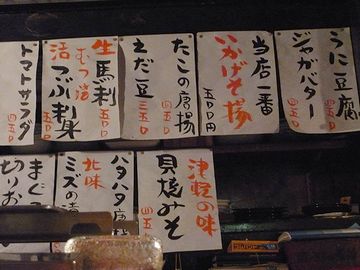 うに豆腐
ジャガバター
四五〇
当店一番
いかげそ揚
五〇〇円
たこの唐揚
四五〇
えだ豆
三五〇
生馬刺
むつ沿
五〇〇
活つぶ刺身
五〇〇
トマトサラダ
四五〇
津軽の味
貝焼みそ
四五〇
ハタハタ唐揚
北味
ミズの漬
まぐ
切りお